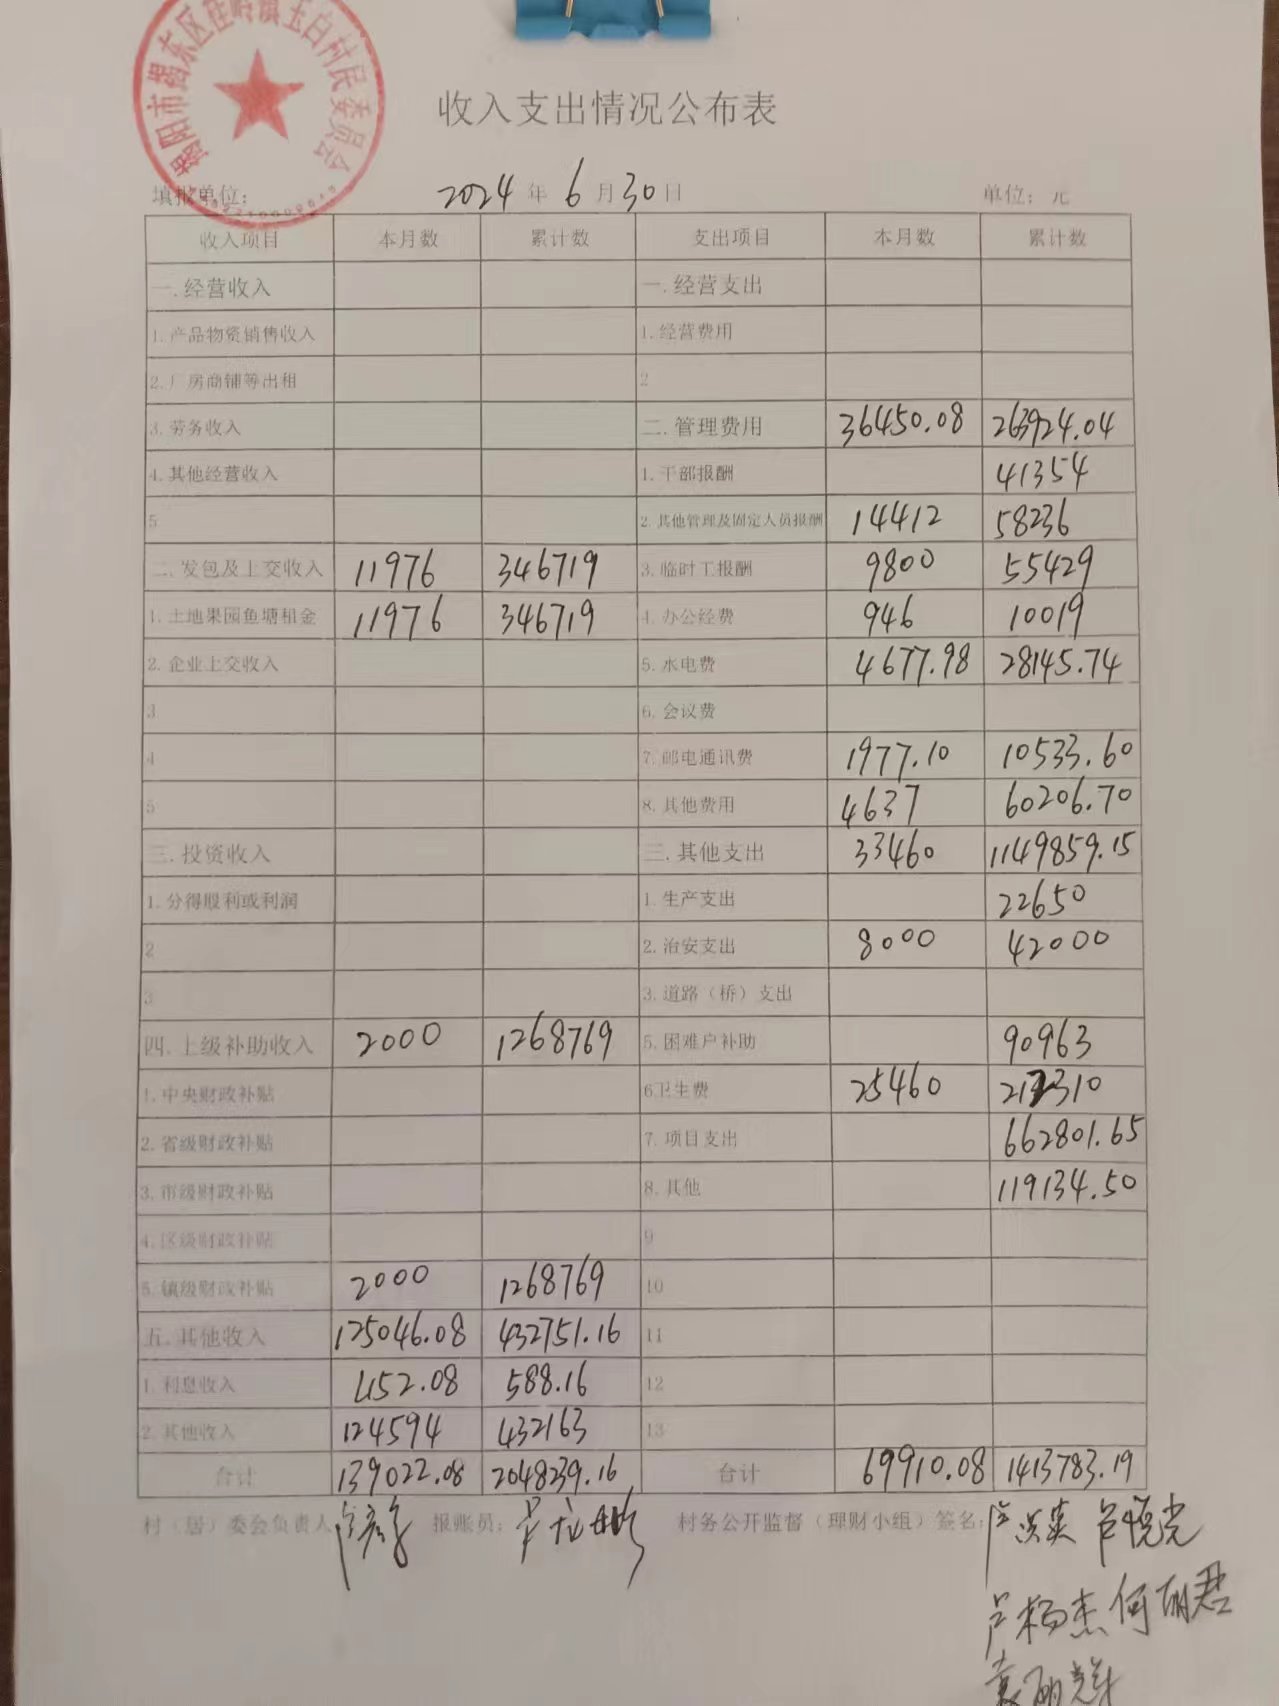 揭阳市揭东区桂岭镇玉白村民委员会
收入支出情况公布表
填报单位: 2024 年 6 月 30 日 单位: 元
收入项目 本月数 累计数 支出项目 本月数 累计数
一.经营收入 一.经营支出
1.产品物资销售收入 1.经营费用
2.厂房商铺等出租 2
3.劳务收入 二.管理费用 36450.08 263924.04
4.其他经营收入 1.干部报酬 41354
5 2.其他管理及固定人员报酬 14412 58236
二.发包及上交收入 11976 346719 3.临时工报酬 9800 55429
1.土地果园鱼塘租金 11976 346719 4.办公经费 946 10019
2.企业上交收入 5.水电费 4677.98 28145.74
3 6.会议费
4 7.邮电通讯费 1977.10 10533.60
5 8.其他费用 4637 60206.70
三.投资收入 三.其他支出 33460 1149859.15
1.分得股利或利润 1.生产支出 22650
2 2.治安支出 8000 42000
3 3.道路（桥）支出
四.上级补助收入 2000 1268769 5.困难户补助 90963
1.中央财政补贴 6卫生费 25460 212310
2.省级财政补贴 7.项目支出 662801.65
3.市级财政补贴 8.其他 119134.50
4.区级财政补贴 9
5.镇级财政补贴 2000 1268769 10
五.其他收入 125046.08 432751.16 11
1.利息收入 452.08 588.16 12
2.其他收入 124594 432163 13
合计 139022.08 2048239.16 合计 69910.08 1413783.19
村（居）委会负责人 报账员: 村务公开监督（理财小组）签名: